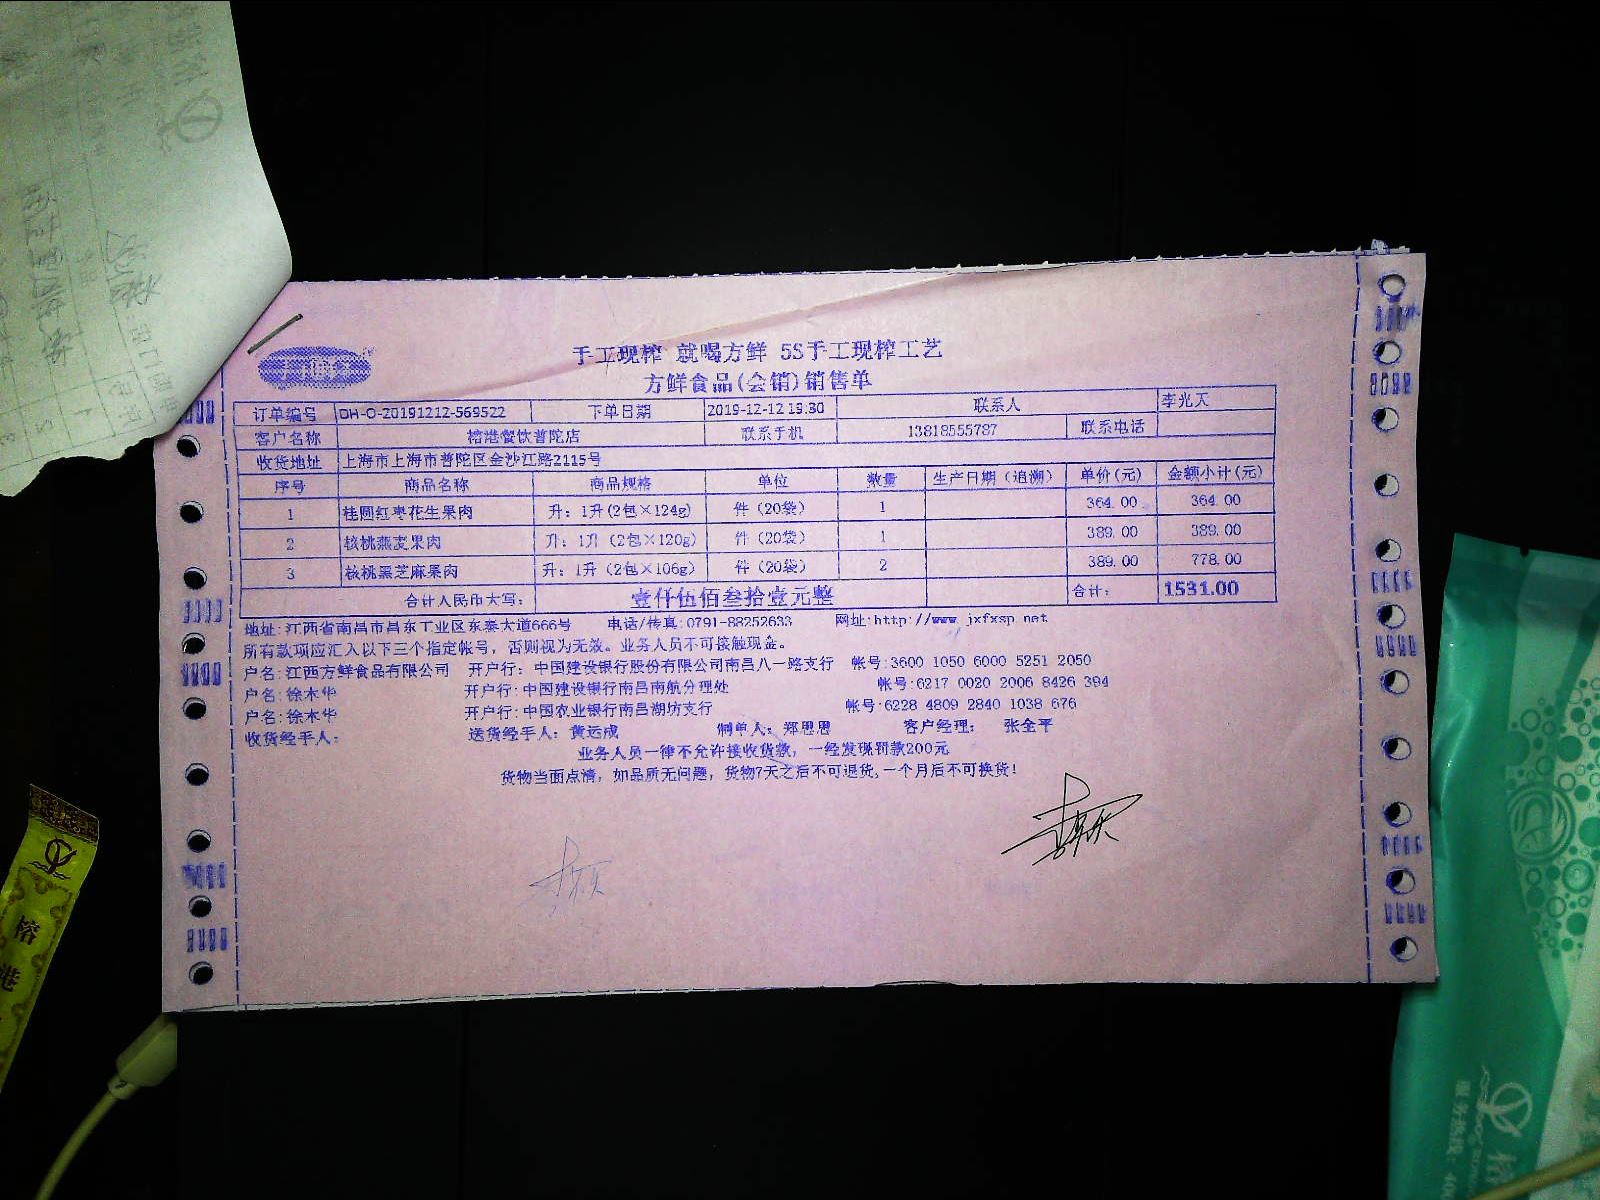 手工现榨 就喝方鲜 5S手工现榨工艺
方鲜食品(会销)销售单
订单编号 DH-O-20191212-569522 下单日期 2019-12-12 19:30 联系人 李光天
客户名称 榕港餐饮普陀店 联系手机 13818555787 联系电话
收货地址 上海市上海市普陀区金沙江路2115号
序号 商品名称 商品规格 单位 数量 生产日期（追溯） 单价(元) 金额小计(元)
1 桂圆红枣花生果肉 升：1升(2包×124g) 件（20袋） 1 364.00 364.00
2 核桃燕麦果肉 升：1升（2包×120g) 件（20袋） 1 389.00 389.00
3 核桃黑芝麻果肉 升：1升（2包×106g) 件（20袋） 2 389.00 778.00
合计人民币大写： 壹仟伍佰叁拾壹元整 合计： 1531.00
地址:江西省南昌市昌东工业区东泰大道666号 电话/传真:0791-88252633 网址:http://www.jxfxsp.net
所有款项应汇入以下三个指定帐号，否则视为无效。业务人员不可接触现金。
户名:江西方鲜食品有限公司 开户行:中国建设银行股份有限公司南昌八一路支行 帐号:3600 1050 6000 5251 2050
户名:徐木华 开户行:中国建设银行南昌南航分理处 帐号:6217 0020 2006 8426 394
户名:徐木华 开户行:中国农业银行南昌湖坊支行 帐号:6228 4809 2840 1038 676
收货经手人： 送货经手人：黄运成 制单人：郑恩恩 客户经理： 张全平
业务人员一律不允许接收货款，一经发现罚款200元
货物当面点清，如品质无问题，货物7天之后不可退货,一个月后不可换货！
榕
港